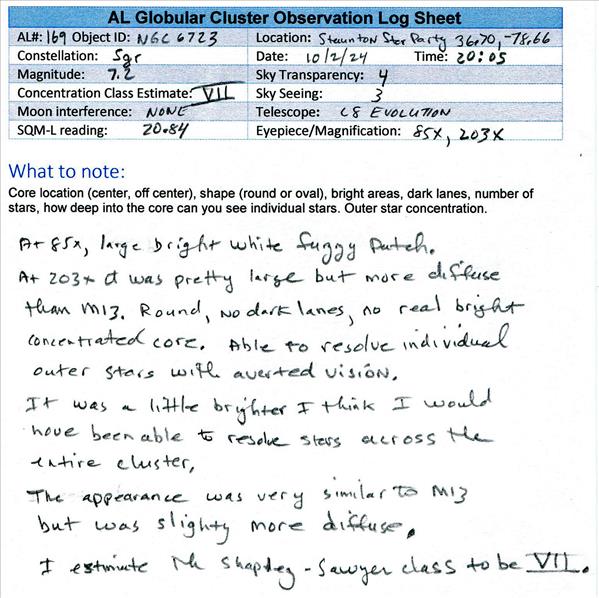 AL Globular Cluster Observation Log Sheet
AL#: 169 Object ID: NGC 6723 Location: Staunton Star Party 36.70, -78.66
Constellation: Sgr Date: 10/2/24 Time: 20:05
Magnitude: 7.2 Sky Transparency: 4
Concentration Class Estimate: VII Sky Seeing: 3
Moon interference: NONE Telescope: C8 EVOLUTION
SQM-L reading: 20.84 Eyepiece/Magnification: 85X, 203X
What to note:
Core location (center, off center), shape (round or oval), bright areas, dark lanes, number of
stars, how deep into the core can you see individual stars. Outer star concentration.
At 85x, large bright white fuzzy patch.
At 203x it was pretty large but more diffuse
than M13. Round, no dark lanes, no real bright
concentrated core. Able to resolve individual
outer stars with averted vision.
It was a little brighter I think I would
have been able to resolve stars across the
entire cluster,
The appearance was very similar to M13
but was slighty more diffuse.
I estimate the Shapley - Sawyer class to be VII.